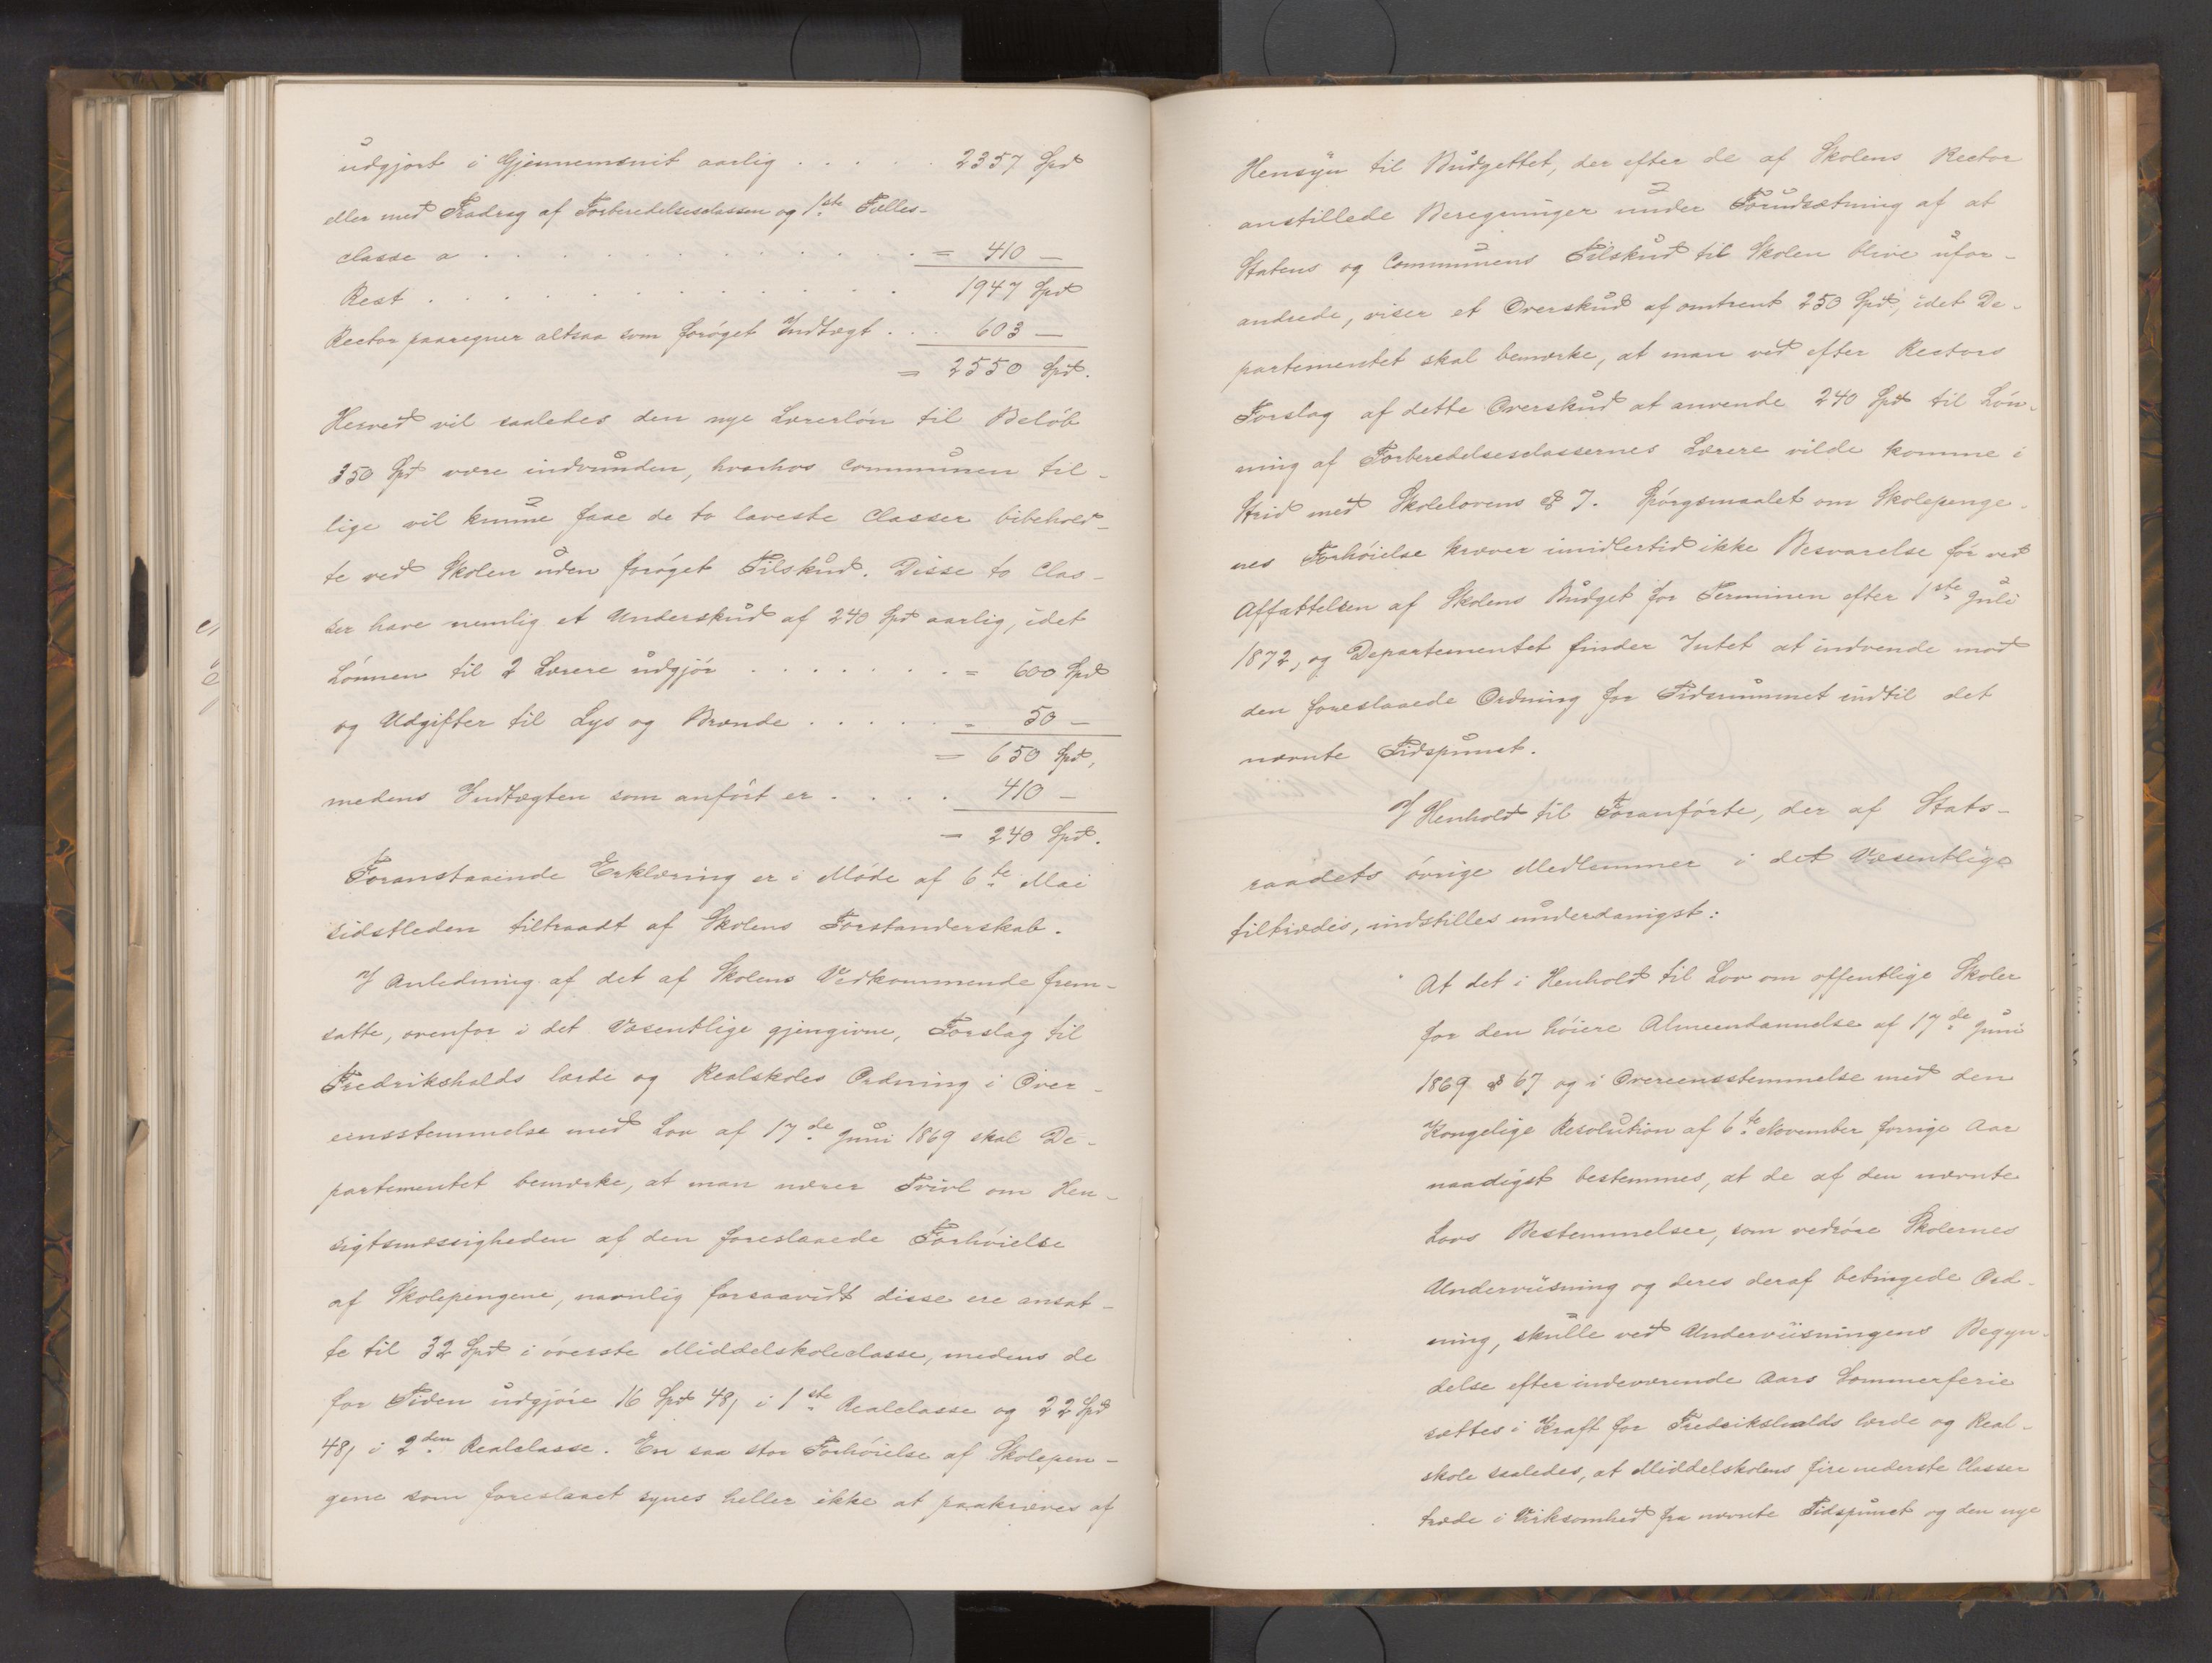 udgjort i Gjennemsnit aarlig . . . . . 2357 Spd
eller med Fradrag af Forberedelsesclassen og 1ste Fælles-
classe a . . . . . . . . . . . . = 410 —
Rest . . . . . . . . . . . . 1947 Spd
Rector paaregner altsaa som forøget Indtægt . . . 603 —
= 2550 Spd.
Herved vil saaledes den nye Lærerløn til Beløb
350 Spd være indvunden, hvorhos Communen til-
lige vil kunne faae de to laveste Classer bibehold-
te ved Skolen uden forøget Tilskud. Disse to Clas-
ser have nemlig et Underskud af 240 Spd aarlig, idet
Lønnen til 2 Lærere udgjør . . . . . . . = 600 Spd
og Udgifter til Lys og Brænde . . . . . = 50 —
= 650 Spd,
medens Indtægten som anført er . . . . 410 —
= 240 Spd.
Foranstaaende Erklæring er i Møde af 6te Mai
sidstleden tiltraadt af Skolens Forstanderskab.
I Anledning af det af Skolens Vedkommende frem-
satte, ovenfor i det Væsentlige gjengivne, Forslag til
Fredrikshalds lærde og Realskoles Ordning i Over-
eensstemmelse med Lov af 17de Juni 1869 skal De-
partementet bemærke, at man nærer Tvivl om Hen-
sigtsmæssigheden af den foreslaaede Forhøielse
af Skolepengene, navnlig forsaavidt disse ere ansat-
te til 32 Spd i øverste Middelskoleclasse, medens de
for Tiden udgjøre 16 Spd 48 ß i 1ste Realclasse og 22 Spd
48 ß i 2den Realclasse. En saa stor Forhøielse af Skolepen-
gene som foreslaaet synes heller ikke at paakræves af
Hensyn til Budgettet, der efter de af Skolens Rector
anstillede Beregninger under Forudsætning af at
Statens og Communens Tilskud til Skolen blive ufor-
andrede, viser et Overskud af omtrent 250 Spd, idet De-
partementet skal bemærke, at man ved efter Rectors
Forslag af dette Overskud at anvende 240 Spd til Løn-
ning af Forberedelsesclassernes Lærere vilde komme i
Strid med Skolelovens § 7. Spørgsmaalet om Skolepenge-
nes Forhøielse kræver imidlertid ikke Besvarelse før ved
Affattelsen af Skolens Budget for Terminen efter 1ste Juli
1872, og Departementet finder Intet at indvende mod
den foreslaaede Ordning for Tidsrummet indtil det
nævnte Tidspunct.
I Henhold til Foranførte, der af Stats-
raadets øvrige Medlemmer i det Væsentlige
tiltrædes, indstilles underdanigst:
At det i Henhold til Lov om offentlige Skoler
for den høiere Almeendannelse af 17de Juni
1869 § 67 og i Overeensstemmelse med den
Kongelige Resolution af 6te November forrige Aar
naadigst bestemmes, at de af den nævnte
Lovs Bestemmelser, som vedrøre Skolernes
Underviisning og deres deraf betingede Ord-
ning, skulle ved Underviisningens Begyn-
delse efter indeværende Aars Sommerferie
sættes i Kraft for Fredrikshalds lærde og Real-
skole saaledes, at Middelskolens fire nederste Classer
træde i Virksomhed fra nævnte Tidspunct og den nye